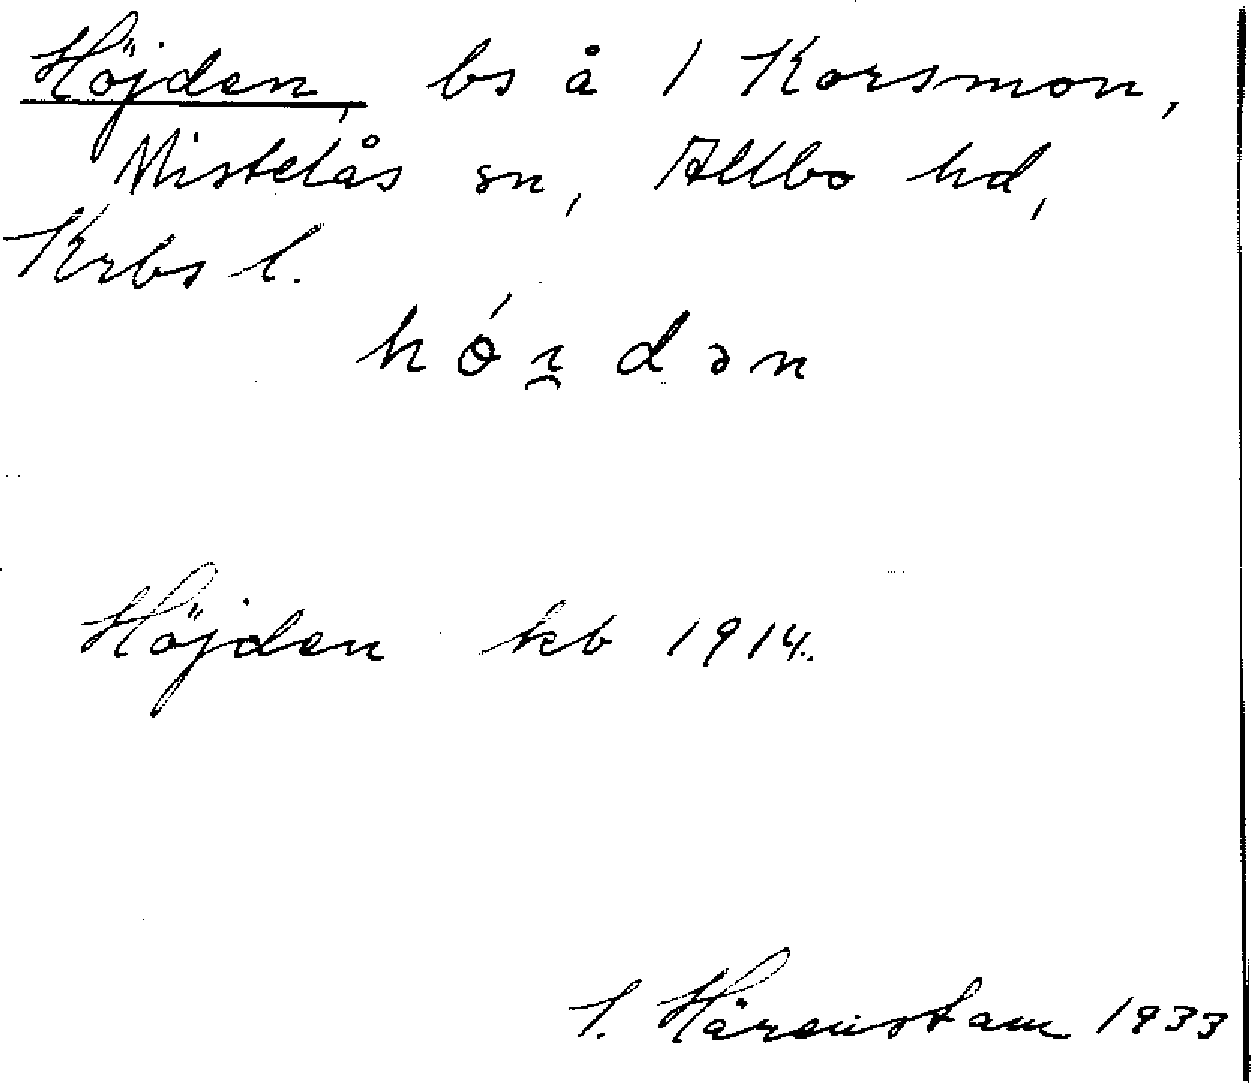 Höjden, bs å 1 Korsmon,
Mistelås sn, Allbo hd,
Krbs l.
hǿi̯dən
Höjden kb 1914.
Härenstam 1933